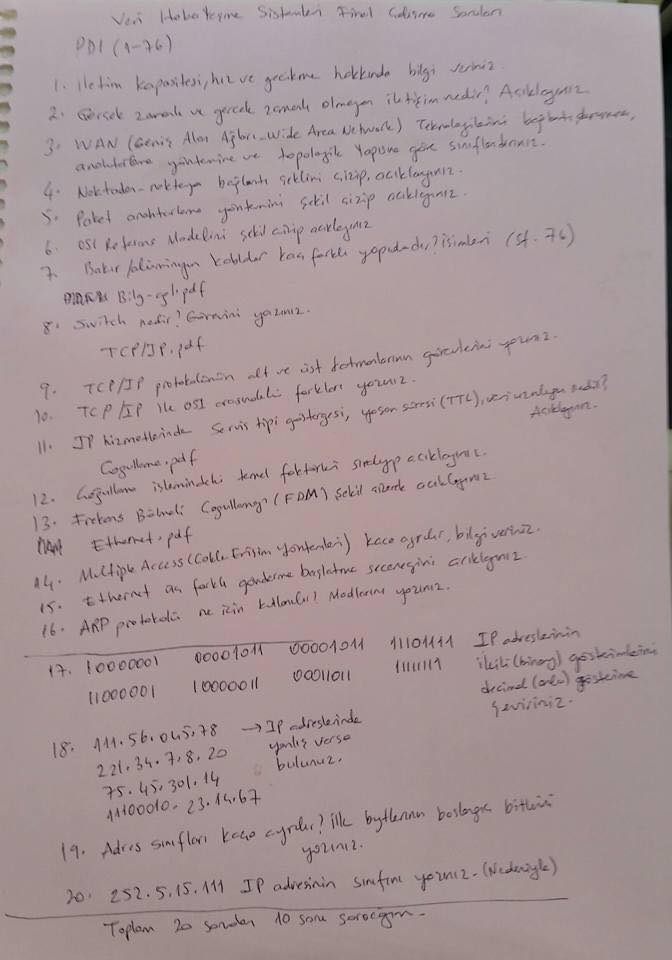 Veri Haberleşme Sistemleri Final Çalışma Soruları
PDF (1-76)
1. İletim kapasitesi, hız ve gecikme hakkında bilgi veriniz.
2. Gerçek zamanlı ve gerçek zamanlı olmayan iletişim nedir? Açıklayınız.
3. WAN (Geniş Alan Ağları - Wide Area Network) Teknolojilerini bağlantı durumuna,
anahtarlama yöntemine ve topolojik yapısına göre sınıflandırınız.
4. Noktadan-noktaya bağlantı şeklini çizip, açıklayınız.
5. Paket anahtarlama yöntemini şekil çizip açıklayınız.
6. OSI Referans Modelini şekil çizip açıklayınız
7. Bakır/alüminyum kablolar kaç farklı yapıdadır? isimleri (sf. 76)
Bilg-ağl.pdf
8. Switch nedir? Görevini yazınız.
TCP/IP.pdf
9. TCP/IP protokolünün alt ve üst katmanlarının görevlerini yazınız.
10. TCP/IP ile OSI arasındaki farkları yazınız.
11. IP hizmetlerinde Servis tipi göstergesi, yaşam süresi (TTL), veri uzunluğu nedir?
Açıklayınız.
Çoğullama.pdf
12. Çoğullama işlemindeki temel faktörleri sıralayıp açıklayınız.
13. Frekans Bölmeli Çoğullamayı (FDM) şekil çizerek açıklayınız.
Ethernet.pdf
14. Multiple Access (Çoklu Erişim Yöntemleri) kaça ayrılır, bilgi veriniz.
15. Ethernet ağ farklı gönderme başlatma seçeneğini açıklayınız.
16. ARP protokolü ne için kullanılır? Modlarını yazınız.
17. 10000001 00001011 00001011 11101111 IP adreslerinin
11000001 10000011 00011011 11111111 ikili (binary) gösterimlerini
decimal (onlu) gösterime
çeviriniz.
18. 111.56.045.78 → IP adreslerinde
221.34.7.8.20 yanlış varsa
75.45.301.14 bulunuz.
11100010.23.14.67
19. Adres sınıfları kaça ayrılır? İlk bytlerının başlangıç bitlerini
yazınız.
20. 252.5.15.111 IP adresinin sınıfını yazınız. (Nedeniyle)
Toplam 20 sorudan 10 soru soracağım.